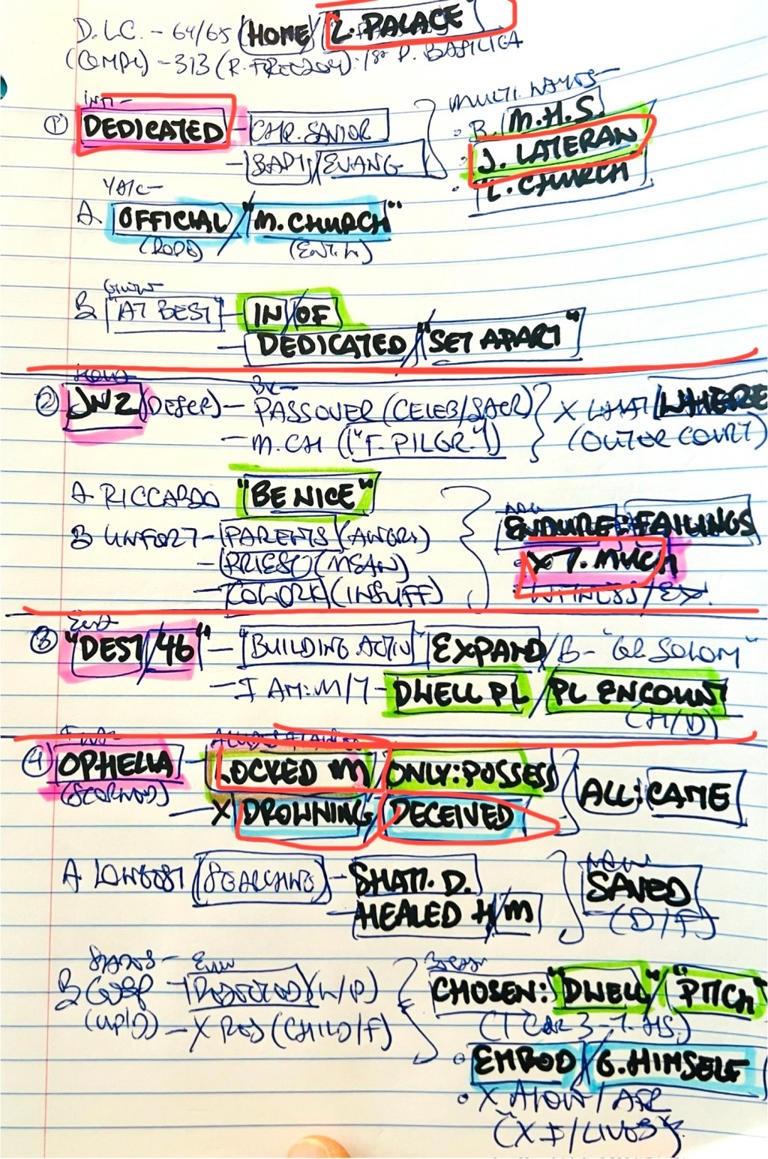 D.L.C. - 64/65 (HOME)/L. PALACE
(COMPL) - 313 (R. FREEDOM): 1st P. BASILICA
① DEDICATED - CHR. SAVIOR
- BAPT/EVANG
MULTI. NAMES-
• B. M.H.S.
• J. LATERAN
• L. CHURCH
A. OFFICIAL/"M. CHURCH"
(POPE)
B "AT BEST" - IN/OF
- DEDICATED/"SET APART"
② JN2 (DESCR) - PASSOVER (CELEB/SACR)
- M.CH ("F. PILGR.")
X WHAT/WHERE
(OUTER COURT)
A. RICCARDO "BE NICE"
B UNFORT - PARENTS (ANGRY)
- PRIEST (MEAN)
- COWORK (INSUFF)
ENDURE: FAILINGS
• X T. MUCH
• WITNESS/EX.
③ "DEST/46" - "BUILDING ACTIV" EXPAND/B-
- I AM: M/T - DWELL PL/PL ENCOUNT
(H/D)
④ OPHELIA - LOCKED M/ONLY: POSSESS
(SCORNED) - X DROWNING/DECEIVED
ALL: CAME
A. LONGEST (SEARCHING) - SHATT. D.
- HEALED H/M
SAVED
(D/F)
B GOSP
(UP/D) - X RES (CHILD/F)
CHOSEN: "DWELL"/"PITCH"
(1 COR 3 - T. HS.)
• EMBOD/G. HIMSELF
• X
(X F/LIVES)